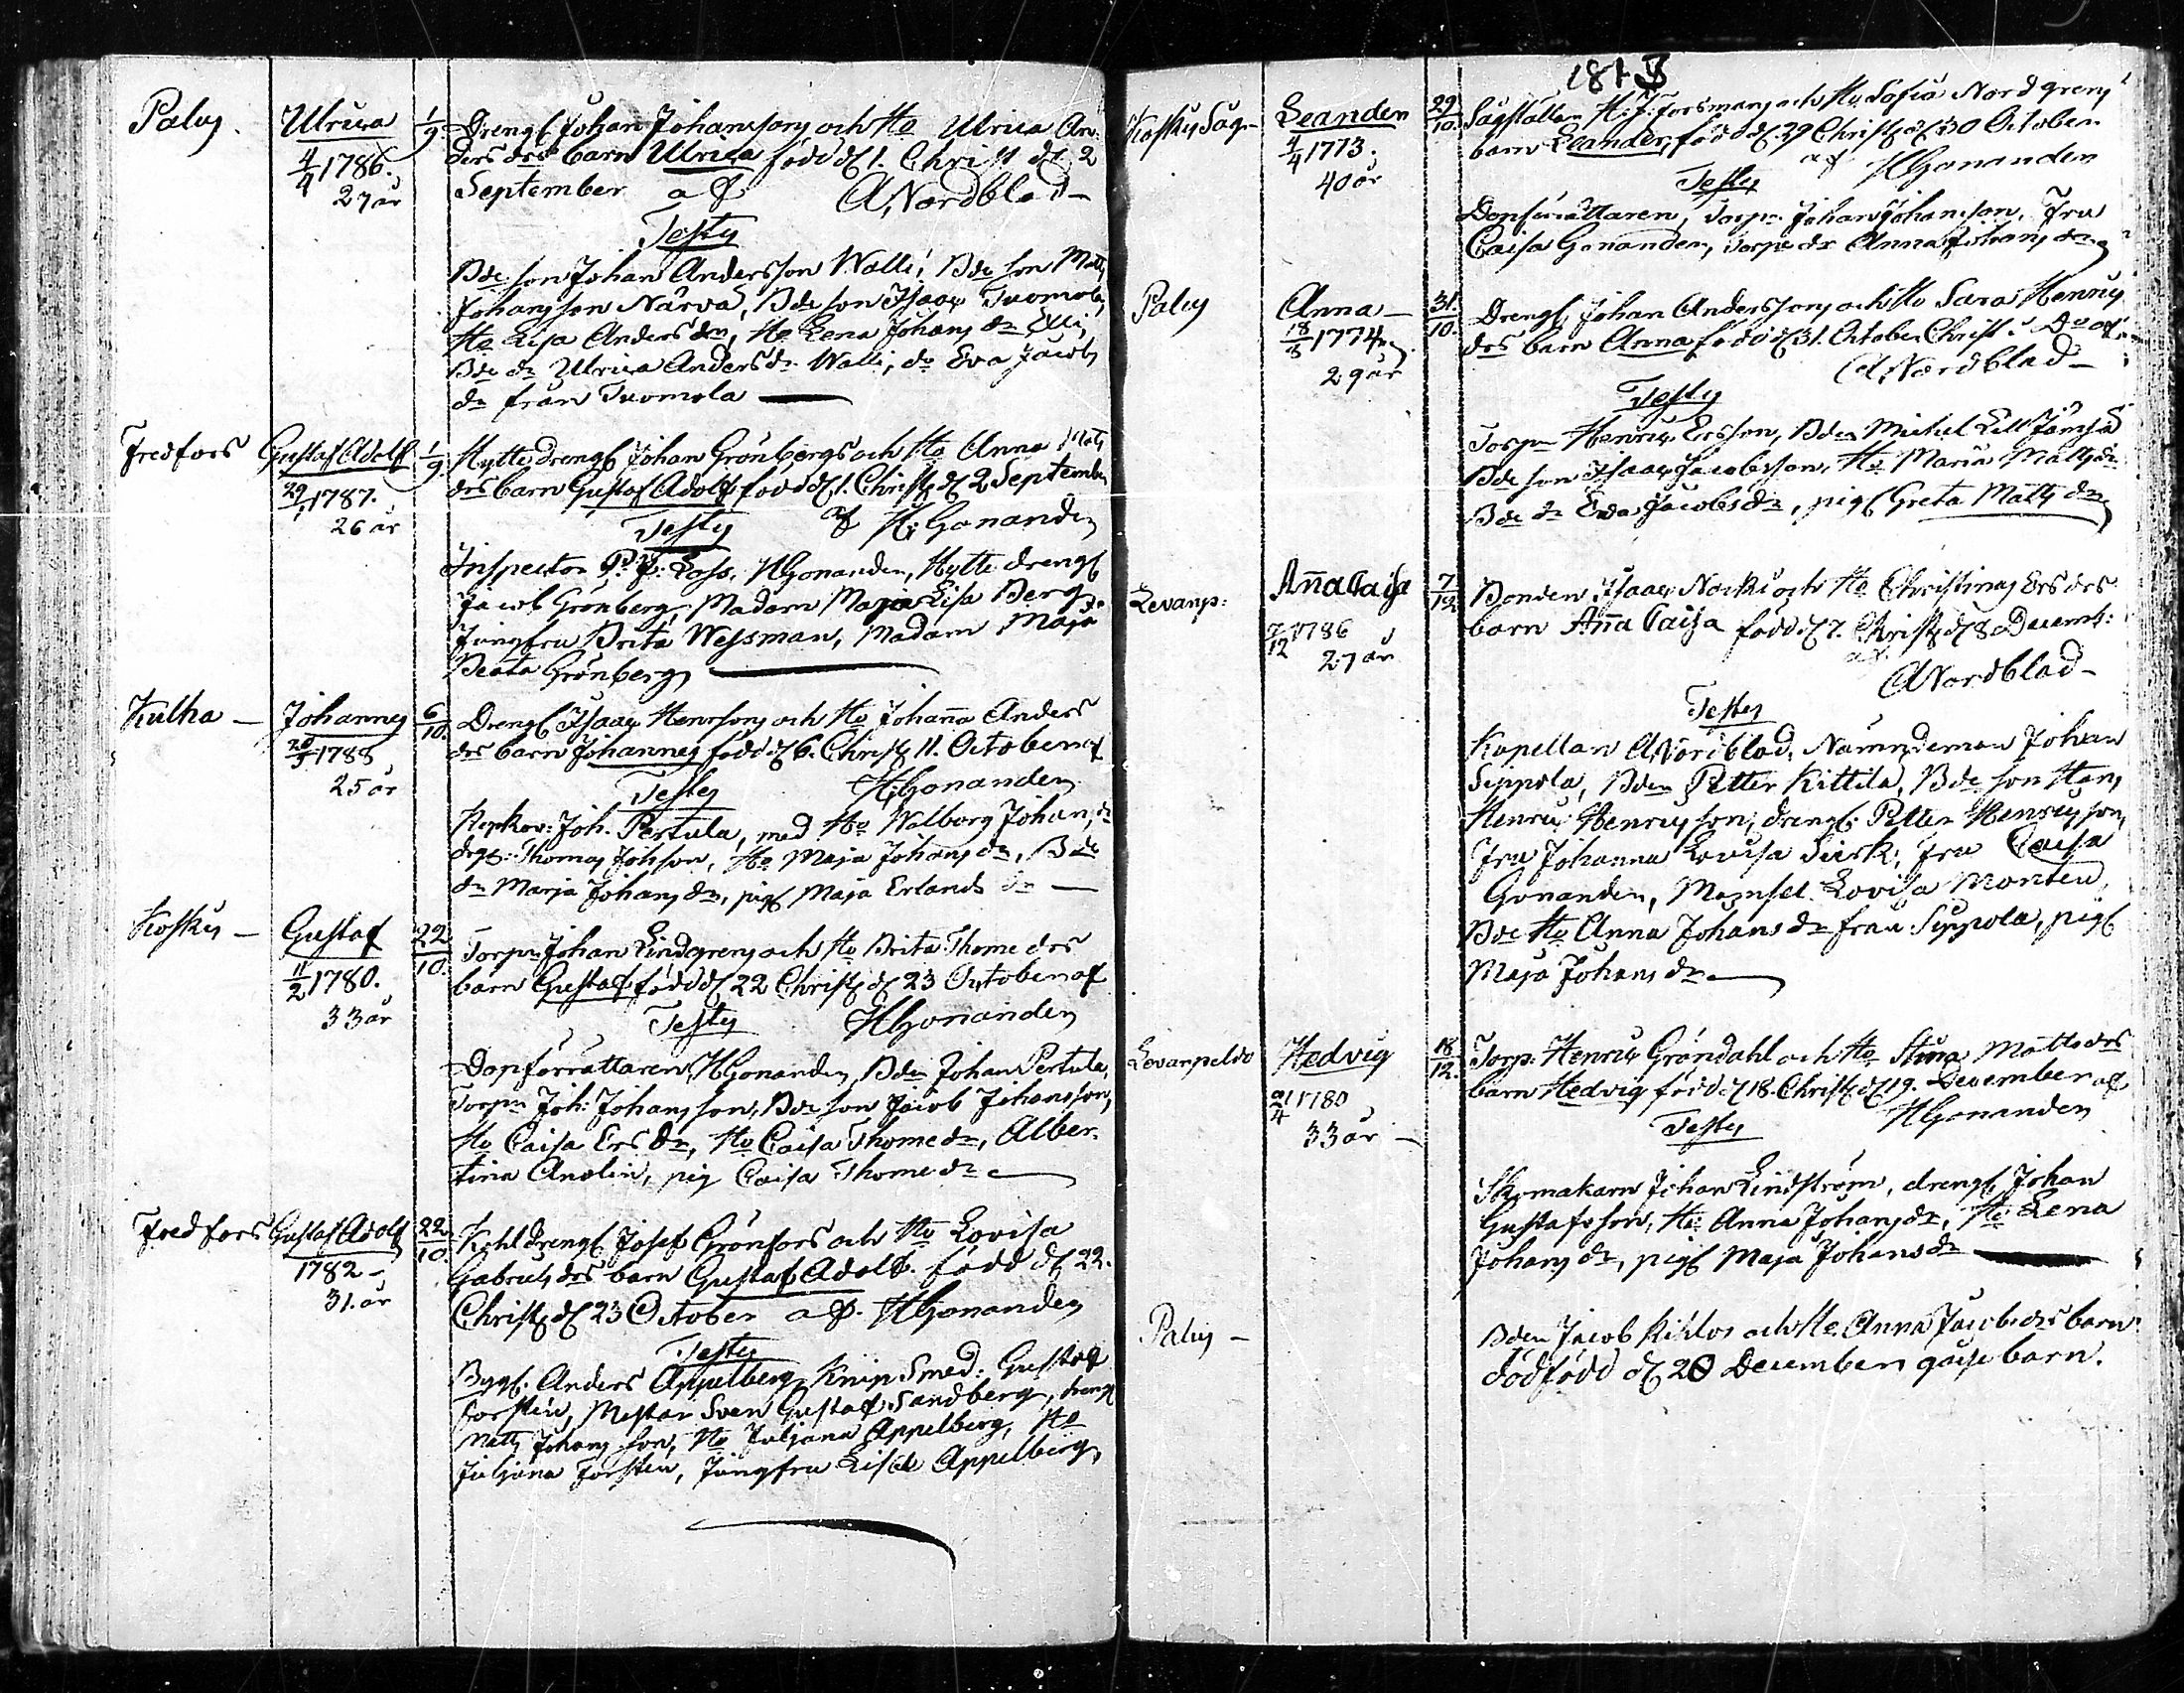 Palus
Ulrica
4/4 1786.
27 år
1/9
Drengs Johan Johansson och Ho Ulrica An-
ders drs barn Ulrica född d. 1. Christ d. 2
September af ANordblad
Testes
Bde son Johan Andersson Walli, Bde son Matts
Johansson Närvä, Bde son Isaac Tuomola,
Ho Lisa Anders dr, Ho Lena Johans dr
Bde dr Ulrica Anders dr Walli, do Eva Jacobs
dr från Tuomola
Fredfors
Gustaf Adolf
29/1 1787.
26 år
1/9
Hytte drengs Johan Grönbergs och Ho Anna Matts
drs barn Gustaf Adolf född d. 1. Christ d. 2 September
Testes af H: Gonander
Inspector P. J: Loss, HGonander, Hytte drengs
Jacob Grönberg, Madam Maja Lisa Berg
Jungfru Brita Wessman, Madam Maja
Beata Grönberg
Kulha
Johannes
1788
25 år
6/10
Drengs Isaac Henrsons och Ho Johanna Anders
drs barn Johannes född d. 6. Christ 11. October af
Testes HGonander
Joh. Pertula, med Ho Walborg Johans dr
Thomas Johsson, Ho Maja Johans dr, Bde
dr Marja Johans dr, pig Maja Erlands dr
Koskis
Gustaf
11/2 1780.
33 år
22/10
Torpn Johan Lindgrens och Ho Brita Thome drs
barn Gustaf född d. 22 Christ d. 23 October af
Testes HGonander
Dopförrättaren HGonander, Bdn Johan Pertula,
Torpn Joh: Johansson, Bde son Jacob Johansson,
Ho Caisa Ers dr, Ho Caisa Thome dr, Alber-
tina Anolin, pig Caisa Thome dr
Fredfors
Gustaf Adolf
1782
31. år
22/10
Kohldrengs Josef Grönfors och Ho Lovisa
Gabriels drs barn Gustaf Adolf. född d. 22.
Christ d. 23 October af. HGonander
Testes
Bygg. Anders Appelberg, Knip Smed: Gustaf
Forsten, Mestar Sven Gustaf Sandberg, drengs
Matts Johansson, Ho Juljana Appelberg, Ho
Juljana Forsten, Jungfru Lisa Appelberg,
1813
Koskis Såg
Leander
4/4 1773.
40 år
29/10
Sågställar H: J: Forsmans och Hu Sofia Nordgrens
barn Leander, född d. 29 Christ d. 30 October
af HGonander
Testes
Dopförrättaren, Torpn Johan Johansson, Fru
Caisa Gonander, Torpe dr Anna Johans dr
Palus
Anna
18/8 1774
29 år
31/10
Drengs Johan Anderssons och Ho Sara Henrics
drs barn Anna född d. 31. October Christ Do af
ANordblad
Testes
Torpn Henric Ersson, Bdn Michel Lill Jämsä
Bde son Isaac Jacobsson, Ho Maria Matts dr
Bde dr Eva Jacobs dr, pigs Greta Matts dr
Levanp:
Anna Caisa
7/12 1786
27 år
7/12
Bonden Isaac Norki och Ho Christinas Ers drs
barn Anna Caisa född d. 7. Christ d. 8 Decemb:
af
ANordblad
Testes
Kapellan ANordblad, Nämndeman Johan
Seppola, Bdn Petter Kittila, Bde son Hans
Henric Henricsson, drengs Petter Henricsson,
Fru Johanna Lovisa Sirk, Fru Caisa
Gonander, Mamsel Lovisa Monten,
Bde Ho Anna Johans dr från Seppola, pigs
Maja Johans dr
Levanpeldo
Hedvig
1780
33 år
18/12.
Torp: Henric Gröndahl och Ho Stina Matts drs
barn Hedvig född d. 18. Christ d. 19. December af
HGonander
Testes
Skomakarn Johan Lindström, drengs Johan
Gustafsson, Ho Anna Johans dr, Ho Lena
Johans dr, pigs Maja Johans dr
Palus
Bdn Jacob Kiklos och Ho Anna Jacobs drs barn
dödfödd d. 20 December gosse barn.